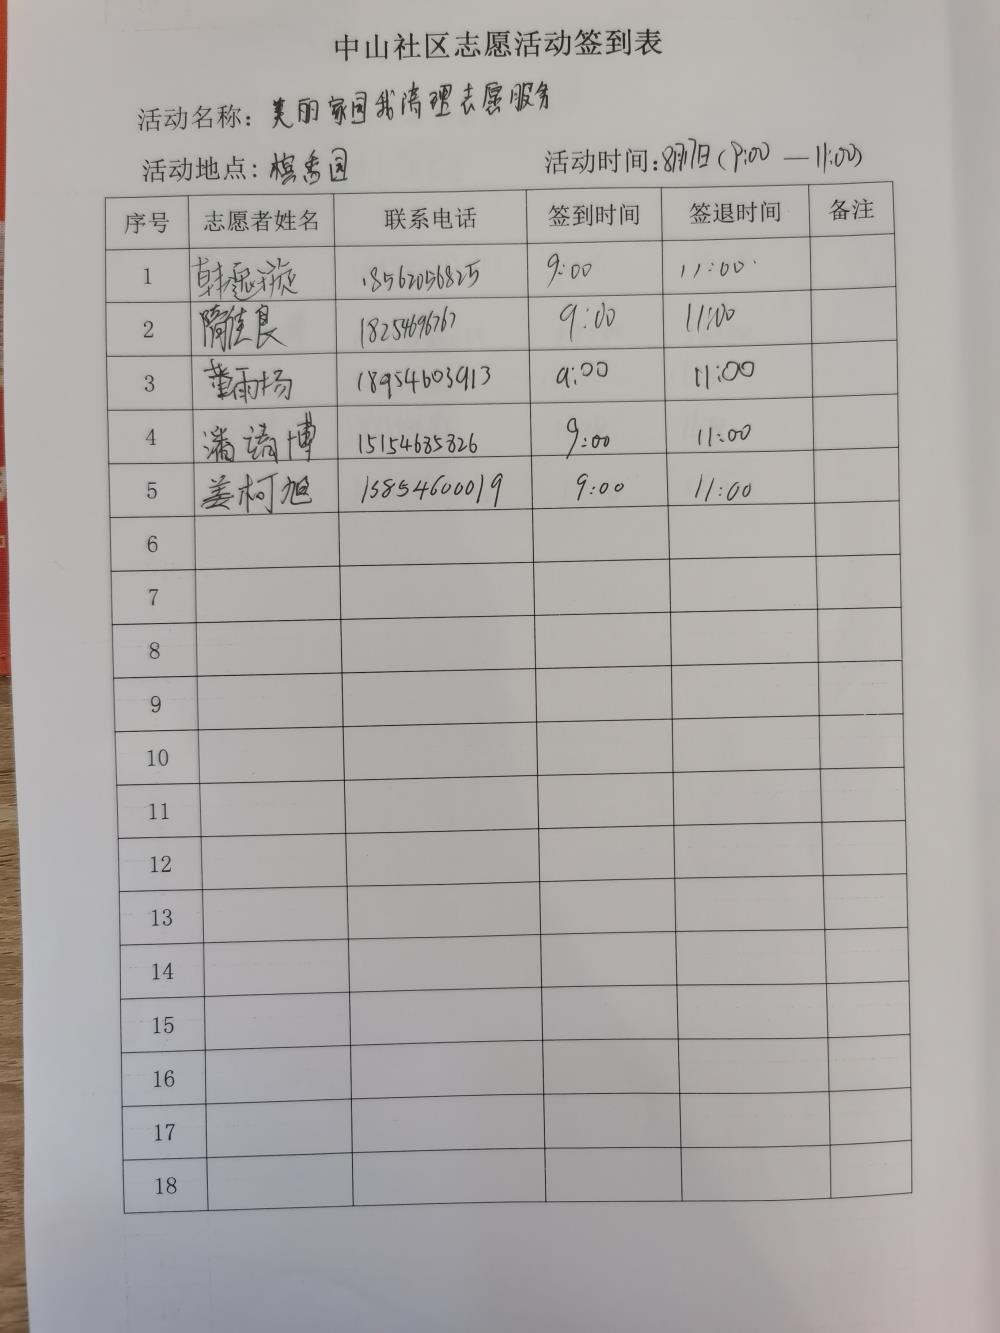 中山社区志愿活动签到表
活动名称: 美丽家园我清理志愿服务
活动地点: 槟香园 活动时间: 8月17日(9:00—11:00)
序号 志愿者姓名 联系电话 签到时间 签退时间 备注
1 韩 18562056825 9:00 11:00
2 隋佳良 1825469676 9:00 11:00
3 董雨杨 18954603913 9:00 11:00
4 潘靖博 15154635326 9:00 11:00
5 姜柯旭 15854600019 9:00 11:00
6
7
8
9
10
11
12
13
14
15
16
17
18